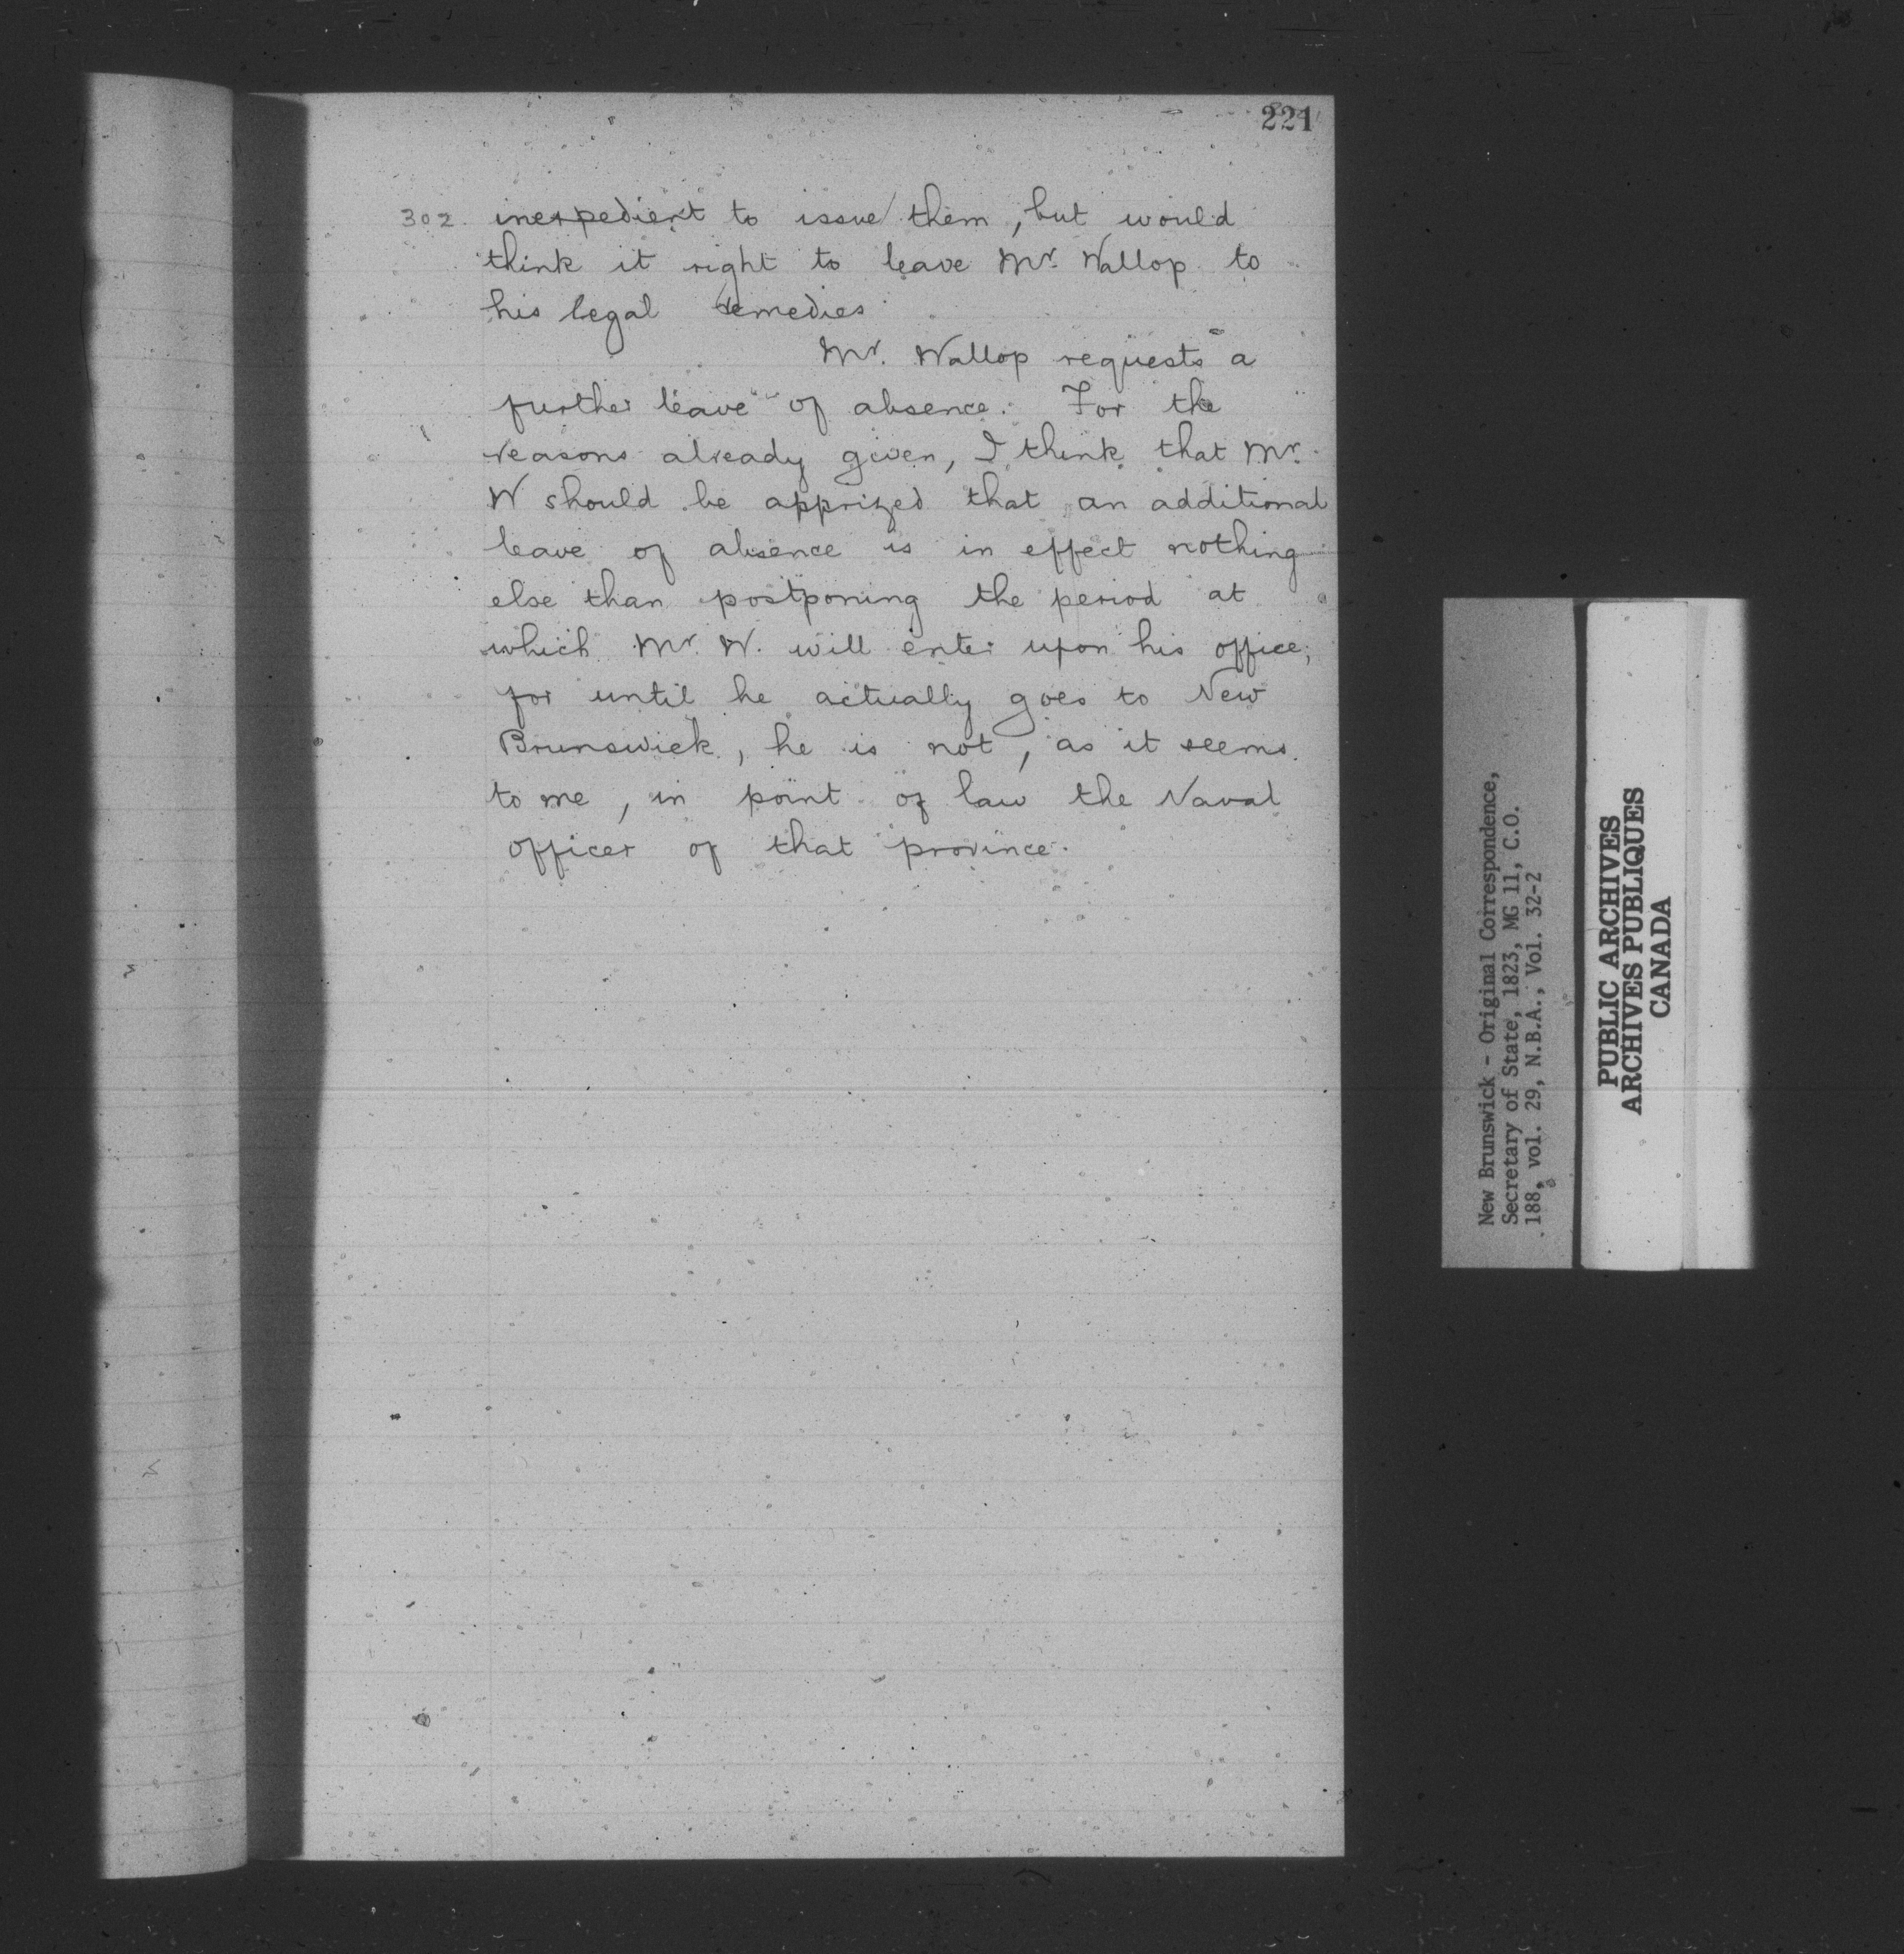 221
302 inexpedient to issue them, but would
think it right to leave Mr. Wallop to
his legal remedies
Mr. Wallop requests a
further leave of absence. For the
reasons already given, I think that Mr.
W should be apprized that an additional
leave of absence is in effect nothing
else than postponing the period at
which Mr. W. will enter upon his office;
for until he actually goes to New
Brunswick, he is not, as it seems
to me, in point of law the Naval
officer of that province.
New Brunswick - Original Correspondence,
Secretary of State, 1823, MG 11, C.O.
188, vol. 29, N.B.A., Vol. 32-2
PUBLIC ARCHIVES
ARCHIVES PUBLIQUES
CANADA